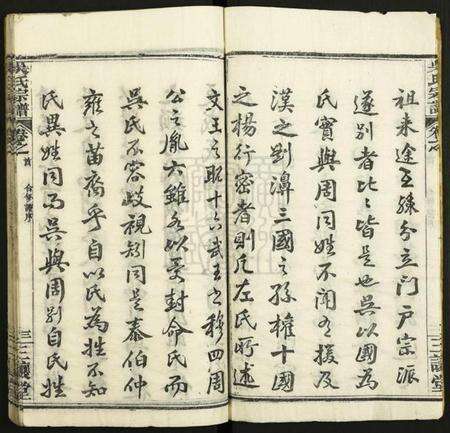 吳氏宗譜
卷之
三讓堂
祖來途至孫分立門戶宗派
遂別者比比皆是也吳以國為
氏實與周同姓不聞有援及
漢之劉濞三國之孫權十國
之楊行密者則凡左氏所述
文王之昭十六武王之穆四周
公之胤六雖各以受封命氏而
吳氏不容歧視矧同是泰伯仲
雍之苗裔乎自以氏為姓不知
氏異姓同而吳與周別自氏姓
吳氏宗譜
卷之首
合修譜序
三
三讓堂